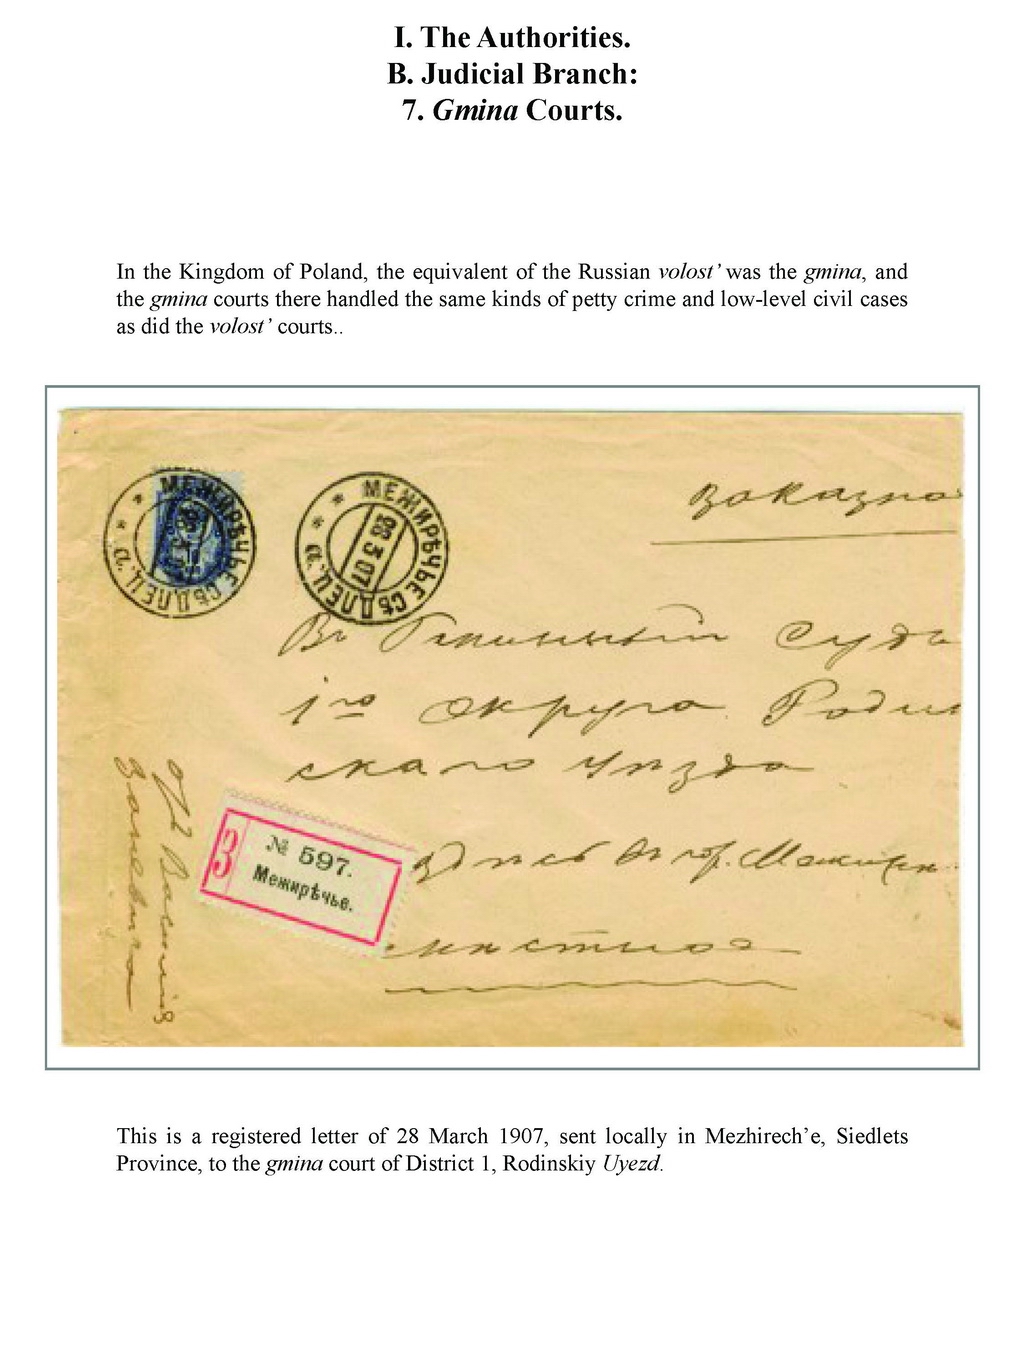 I. The Authorities.
B. Judicial Branch:
7. Gmina Courts.
In the Kingdom of Poland, the equivalent of the Russian volost’ was the gmina, and
the gmina courts there handled the same kinds of petty crime and low-level civil cases
as did the volost’ courts..
МЕЖИРѢЧЬЕ СѢДЛЕЦ.
МЕЖИРѢЧЬЕ СѢДЛЕЦ.
28 3 07
Заказно
Въ Гминный Судъ
1го ОкругаРади
скаго Уѣзда
здѣсь въ гор.
мѣстное
З
№ 597.
Межирѣчье.
This is a registered letter of 28 March 1907, sent locally in Mezhirech’e, Siedlets
Province, to the gmina court of District 1, Rodinskiy Uyezd.